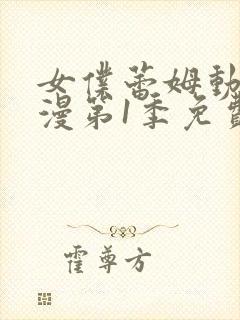 女僕蕾姆動
漫第1季免費
霍尊方